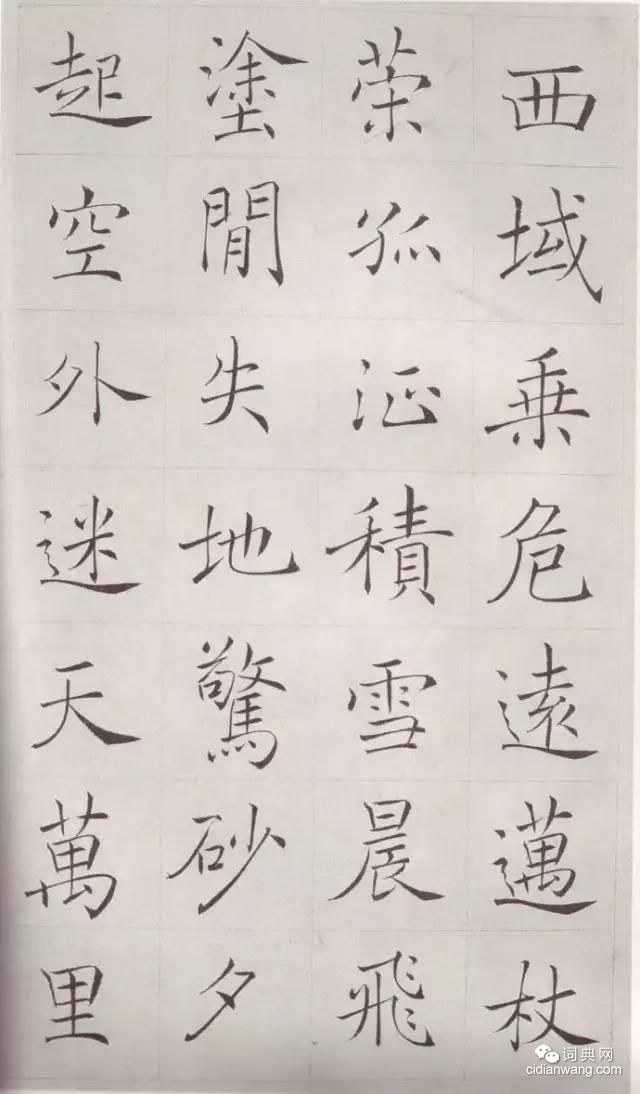 西域乗危遠邁杖
策孤征積雪晨飛
塗閒失地驚砂夕
起空外迷天萬里
词典网
cidianwang.com